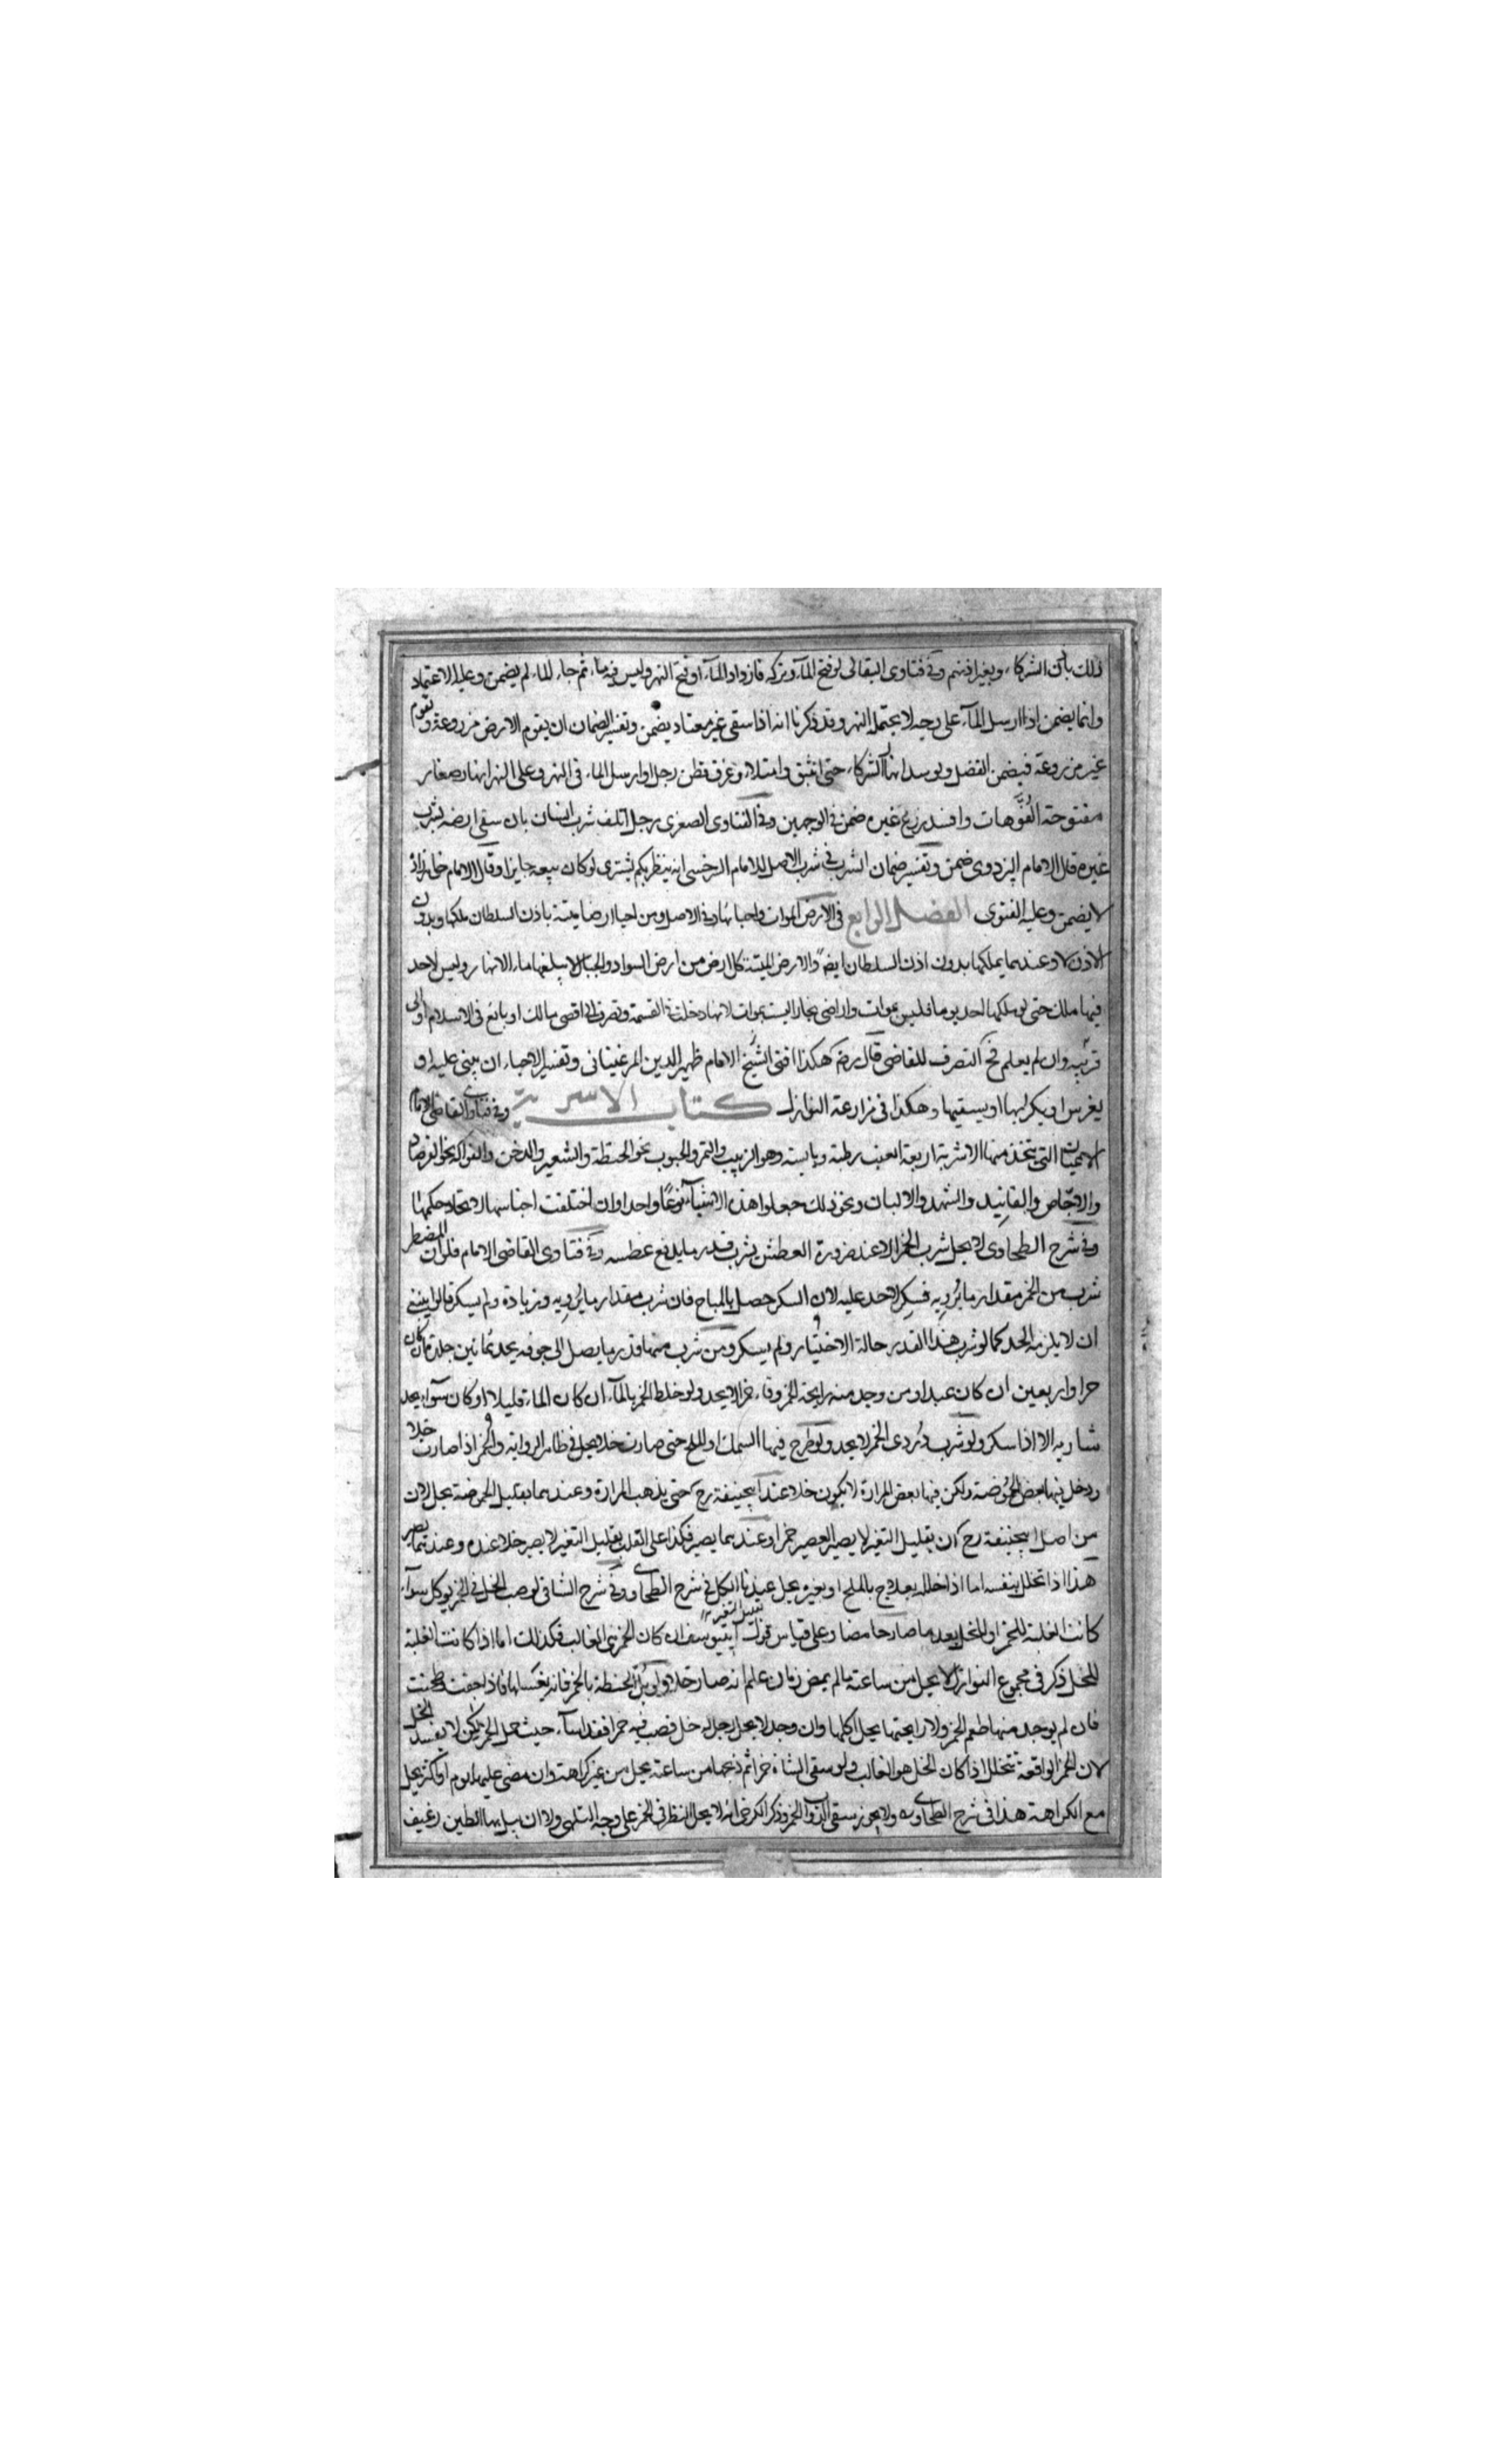 ذلك باذن الشركاء وبغير اذنهم وفي فتاوى البقالى لو فتح المآء وتركه فازداد المآء او فتح النهر وليس فيه ماء ثم جاء الماء لم يضمن وعليه الاعتماد
وانما يضمن اذا ارسل المآء على وجه لا يحتمله النهر وقد ذكرنا انه اذا سقى غير معتاد يضمن وتفسير الضمان ان يقوم الارض مزروعة وتقوم
غير مزروعة فيضمن الفضل ولو سد انهار الشركاء حتى انبثق وامتلاء وغرق قطن رجل او ارسل الماء في النهر وعلى النهر انهار صغار
مفتوحة الفُوَّهات وافسد زرع غيره ضمن في الوجهين وفي الفتاوى الصغرى رجل اتلف شرب انسان بان سقى ارضه بشرب
غيره قال الامام البزدوى ضمن وتفسير ضمان الشرب في شرب الاصل للامام السرخسى انه ينظر بكم يشترى لو كان بيعه جايزا وقال الامام خواهرزاده
لا يضمن وعليه الفتوى الفصل الرابع في الارض الموات واحيائها وفي الاصل ومن احيا ارضا ميتة باذن السلطان ملكها وبدون
الاذن لا وعندهما يملكها بدون اذن السلطان ايضا والارض الميتة كل ارض من ارض السواد والجبال لا يبلغها ماء الانهار وليس لاحد
فيها ملك حتى لو ملكها احد يوما فليس بموات واراضى بخارا ليست بموات لانها دخلت في القسمة وتصرف الى اقصى مالك او بائع في الاسلام او الى
قربته وان لم يعلم فح التصرف للقاضى قال رضه هكذا افتى الشيخ الامام ظهير الدين المرغينانى وتفسير الاحياء ان يبنى عليه او
يغرس او يكربها او يسقيها وهكذا في مزارعة النوازل كتاب الاشربة وفي فتاوى القاضى الامام
الاعيان التى يتخذ منها الاشربة اربعة العنب رطبته ويابسته وهو الزبيب والتمر والحبوب نحو الحنطة والشعير والدخن والفواكه نحو الفرصاد
والاجّاص والفانيد والشهد والالبان ونحو ذلك جعلوا هذه الاشيآء نوعًا واحدا وان اختلفت اجناسها لاتحاد حكمها
وفي شرح الطحاوى لا يحل شرب الخمر الا عند ضرورة العطش يشرب قدر ما يدفع عطشه وفي فتاوى القاضى الامام فلو ان المضطر
شرب من الخمر مقدار ما يُرويه فسكر لا حد عليه لان السكر حصل بالمباح فان شرب مقدار ما يُرويه وزيادة ولم يسكر قالوا ينبغى
ان لا يلزمه الحد كما لو شرب هذا القدر حالة الاختيار ولم يسكر ومن شرب منها قدر ما يصل الى جوفه يحد ثمانين جلدة ان كان
حرا واربعين ان كان عبدا ومن وجد منه رايحة الخمر وقاء خمرا لا يحد ولو خلط الخمر بالمآء ان كان الماء قليلا او كان سوآء يحد
شاربه الا اذا سكر ولو شرب دُردى الخمر لا يحد ولو طرح فيها السمك او الملح حتى صارت خلا يحل في ظاهر الرواية والخمر اذا صارت خلا
ودخل فيها بعض الحُموضة ولكن فيها بعض المرارة لا يكون خلا عند ابيحنيفة رح حتى يذهب المرارة وعندهما بقليل الحموضة يحل لان
من اصل ابيحنيفة رح ان بقليل التغير لا يصير العصير خمرا وعندهما يصير فكذا على القلب بقليل التغير لا يصير خلا عنده وعندهما يصير
هذا اذا تخلل بنفسه اما اذا خلله بعلاج بالملح او بغيره يحل عندنا الكل في شرح الطحاوى وفي شرح الشافى لو صب الخل في الخمر يوكل سوآء
كانت الغلبة للخمر او للخل بعد ما صار حامضا وعلى قياس قول ابى يوسف ان كان الخمر هى الغالب فكذلك اما اذا كانت الغلبة
بقليل التغير
للخل ذكر في مجموع النوازل لا يحل من ساعته ما لم يمض زمان علم انه صار خلا ولو بُل الحنطة بالخمر فانه يغسلها فاذا جفت وطحنت
فان لم يوجد منها طعم الخمر ولا رايحتها يحل اكلها وان وجد لا يحل رجل له خل فصب فيه خمرا فقد اساء حيث حمل الخمر لكن لا يفسد الخل
لان الخمر الواقعة تتخلل اذا كان الخل هو الغالب ولو سقى الشاة خمرا ثم ذبحها من ساعته يحل من غير كراهة وان مضى عليها يوم او اكثر يحل
مع الكراهة هذا في شرح الطحاوى ولا يجوز سقى الدواب الخمر وذكر الكرخى انه لا يحل النظر في الخمر على وجه التلهى ولا ان يبل بها الطين رغيف